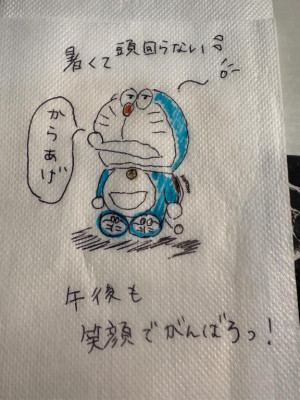 暑くて頭回らない
からあげ
午後も
笑顔でがんばろっ！